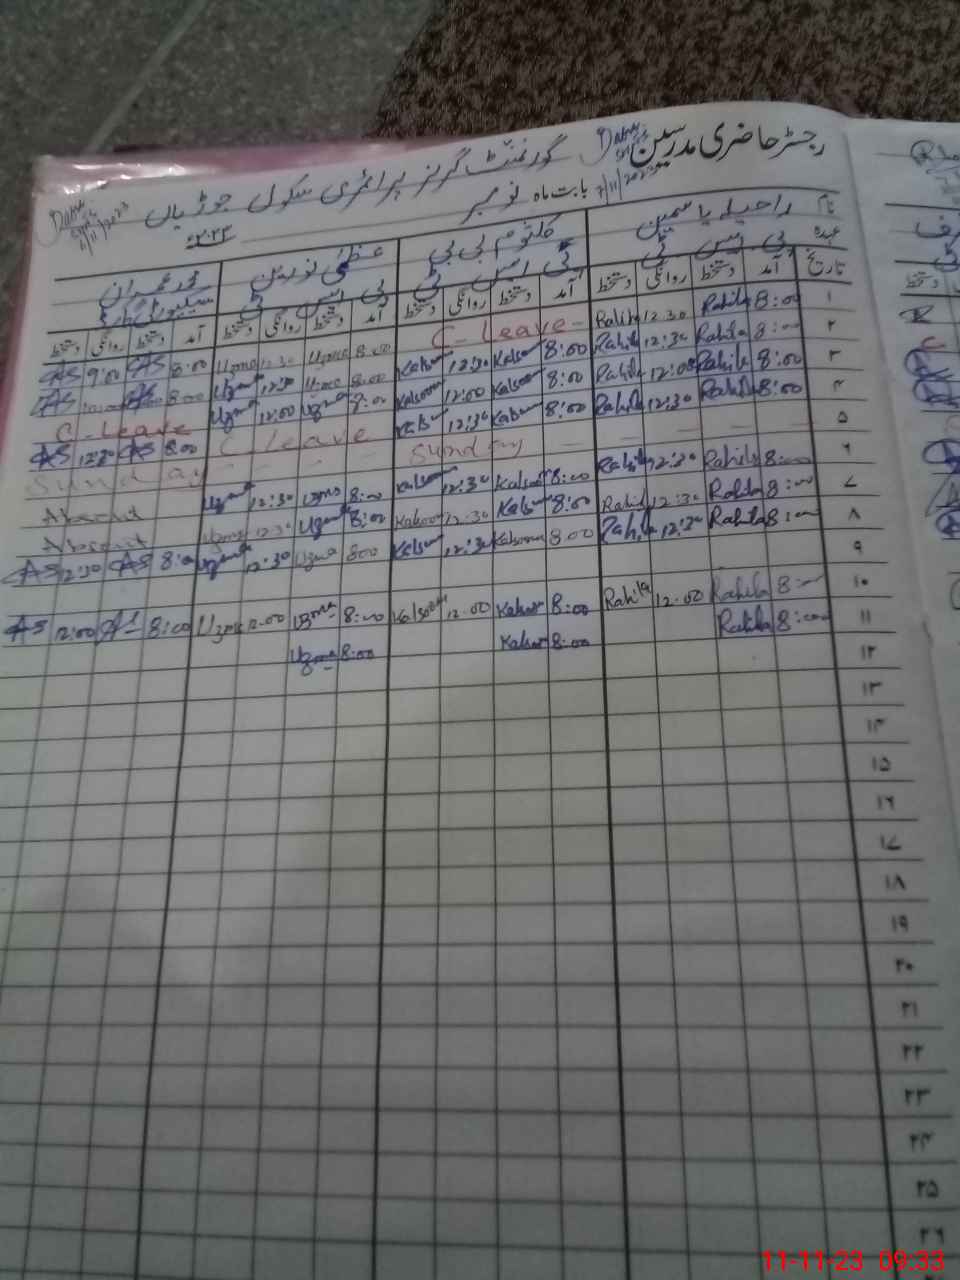 رجسٹر حاضری مدرسین گورنمنٹ گرلز پرائمری سکول جوڑیاں
بابت ماہ نومبر ۲۰۲۳ء
7/11/2023
نام راحیلہ یاسمین کلثوم بی بی عظمیٰ نورین محمد عمران
عہدہ پی ایس ٹی پی ایس ٹی پی ایس ٹی سیکیورٹی گارڈ
تاریخ آمد دستخط روانگی دستخط آمد دستخط روانگی دستخط آمد دستخط روانگی دستخط آمد دستخط روانگی دستخط
۱ 8:00 Rahila 12:30 Rahila C- Leave - 8:00 Uzma 12:30 Uzma 8:00 AS 9:00 AS
۲ 8:00 Rahila 12:30 Rahila 8:00 Kalsoom 12:30 Kalsoom 8:00 Uzma 12:30 Uzma 8:00 AS AS
۳ 8:00 Rahila 12:00 Rahila 8:00 Kalsoom 12:00 Kalsoom 8:00 Uzma 12:00 Uzma C-Leave
۴ 8:00 Rahila 12:30 Rahila 8:00 Kalsoom 12:30 Kalsoom C Leave 8:00 AS 12:30 AS
۵ - - - - Sunday - - - - Sunday
۶ 8:00 Rahila 12:30 Rahila 8:00 Kalsoom 12:30 Kalsoom 8:00 Uzma 12:30 Uzma Absent
۷ 8:00 Rahila 12:30 Rahila 8:00 Kalsoom 12:30 Kalsoom 8:00 Uzma 12:30 Uzma Absent
۸ 8:00 Rahila 12:30 Rahila 8:00 Kalsoom 12:30 Kalsoom 8:00 Uzma 12:30 Uzma 8:00 AS 12:30 AS
۹
۱۰ 8:00 Rahila 12:00 Rahila 8:00 Kalsoom 12:00 Kalsoom 8:00 Uzma 12:00 Uzma 8:00 AS 12:00 AS
۱۱ 8:00 Rahila 8:00 Kalsoom 8:00 Uzma
۱۲
۱۳
۱۴
۱۵
۱۶
۱۷
۱۸
۱۹
۲۰
۲۱
۲۲
۲۳
۲۴
۲۵
۲۶
11-11-23 09:33